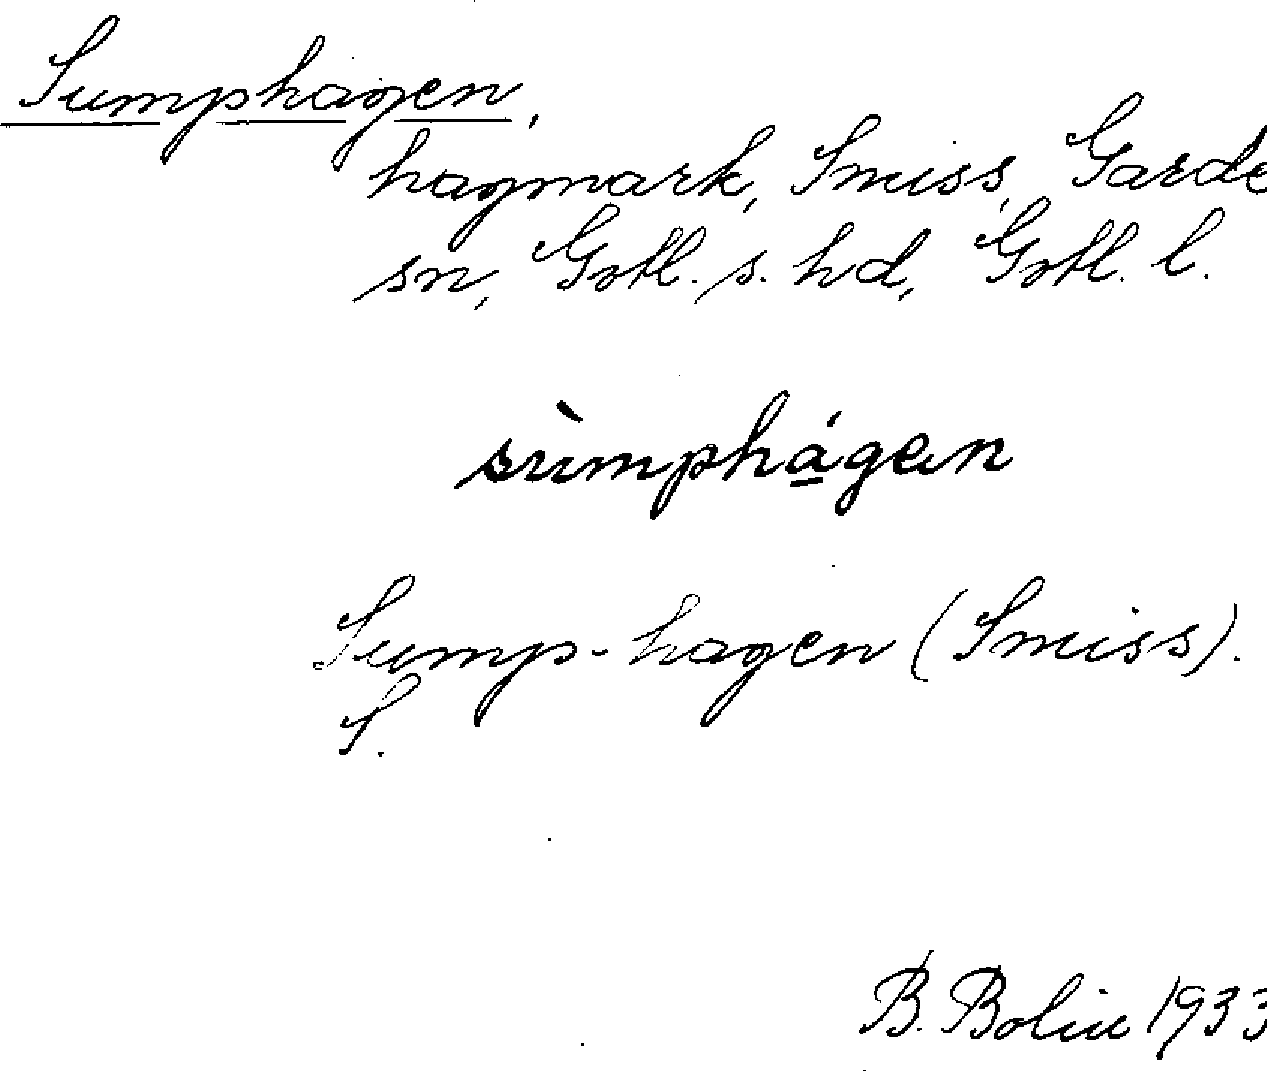 Sumphagen,
hagmark, Smiss, Garde
sn, Gotl. s. hd, Gotl. l.
sùmphá̱gen
Sump-hagen (Smiss).
S.
B. Bolin 1933